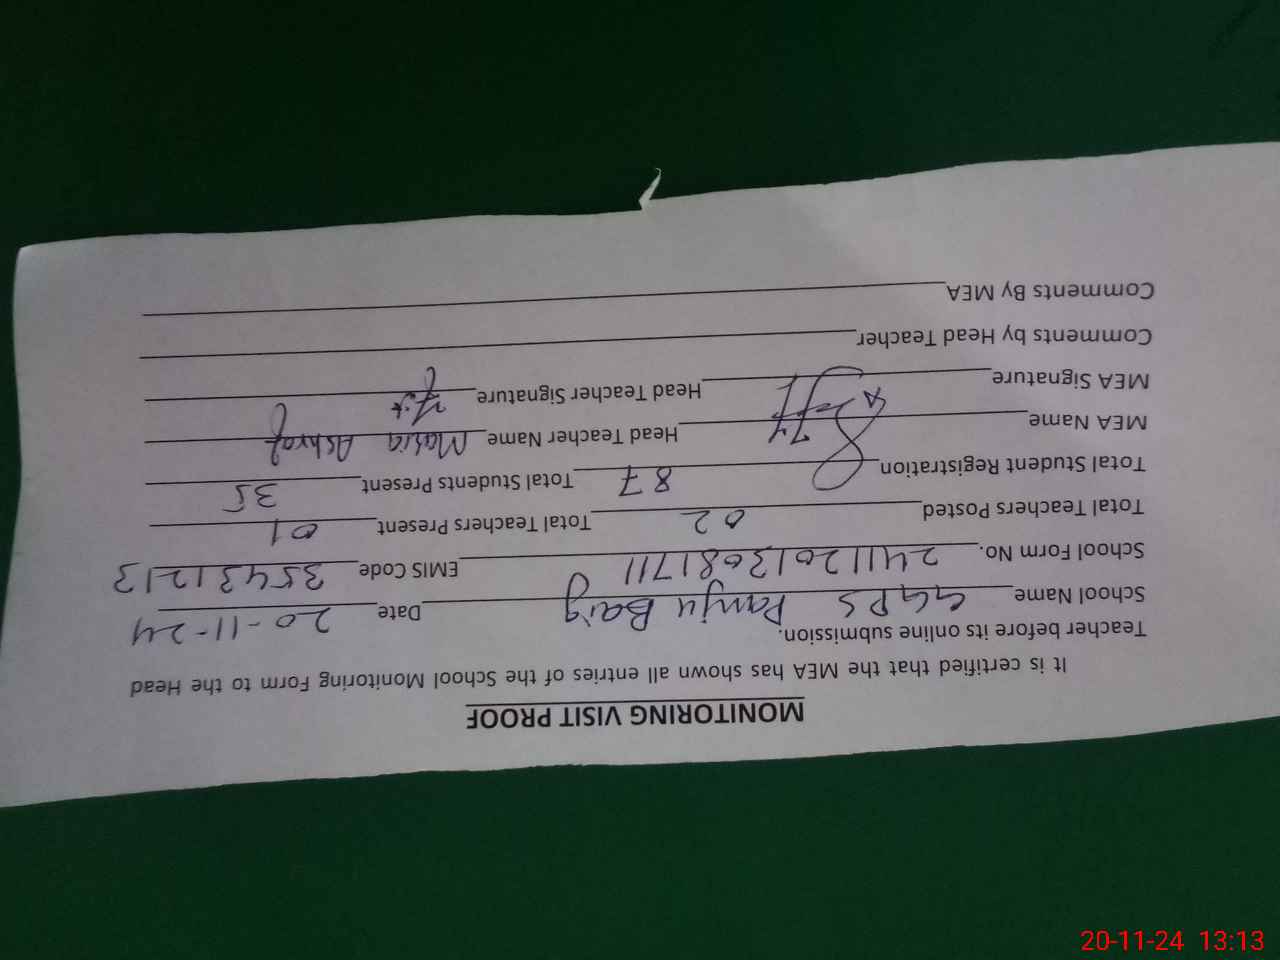 MONITORING VISIT PROOF
It is certified that the MEA has shown all entries of the School Monitoring Form to the Head
Teacher before its online submission.
School Name GGPS Panju Baig Date 20-11-24
School Form No. 241120130817111 EMIS Code 35431213
Total Teachers Posted 02 Total Teachers Present 01
Total Student Registration 87 Total Students Present 35
MEA Name Head Teacher Name Maria Ashraf
MEA Signature Head Teacher Signature
Comments by Head Teacher
Comments By MEA
20-11-24 13:13